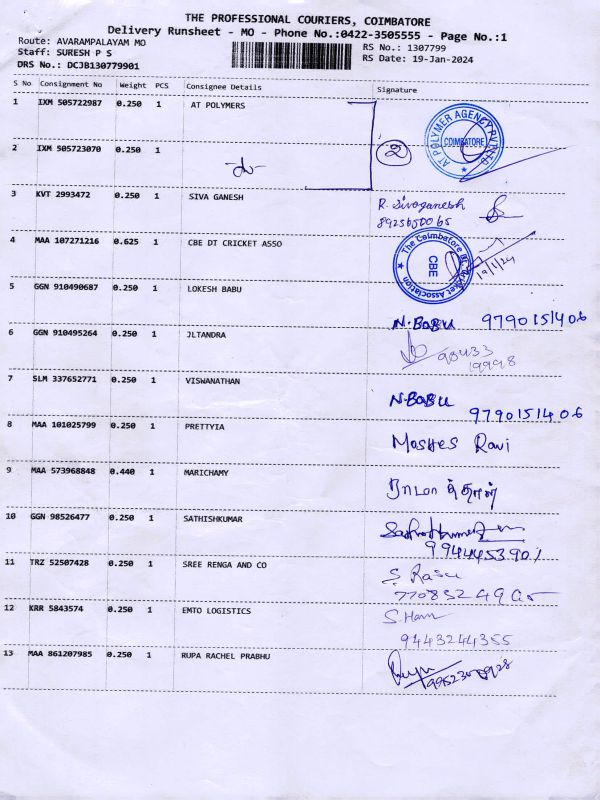 THE PROFESSIONAL COURIERS, COIMBATORE
Delivery Runsheet - MO - Phone No.:0422-3505555 - Page No.:1
Route: AVARAMPALAYAM MO
RS No.: 1307799
Staff: SURESH P S
RS Date: 19-Jan-2024
DRS No.: DCJB130779901
S No Consignment No Weight PCS Consignee Details Signature
1 IXM 505722987 0.250 1 AT POLYMERS
AT POLYMER AGENCY PVT LTD
COIMBATORE
2 IXM 505723070 0.250 1
2
3 KVT 2993472 0.250 1 SIVA GANESH
R. Sivaganesh
8925650065
4 MAA 107271216 0.625 1 CBE DT CRICKET ASSO
CBE
19/1/24
5 GGN 910490687 0.250 1 LOKESH BABU
N.BABU 9790151406
6 GGN 910495264 0.250 1 JLTANDRA
98433
19998
7 SLM 337652771 0.250 1 VISWANATHAN
N.BABU
9790151406
8 MAA 101025799 0.250 1 PRETTYIA
Moshes Ravi
9 MAA 573968848 0.440 1 MARICHAMY
10 GGN 98526477 0.250 1 SATHISHKUMAR
11 TRZ 52507428 0.250 1 SREE RENGA AND CO
S. Rasu
12 KRR 5843574 0.250 1 EMTO LOGISTICS
S. Hari
9443244355
13 MAA 861207985 0.250 1 RUPA RACHEL PRABHU